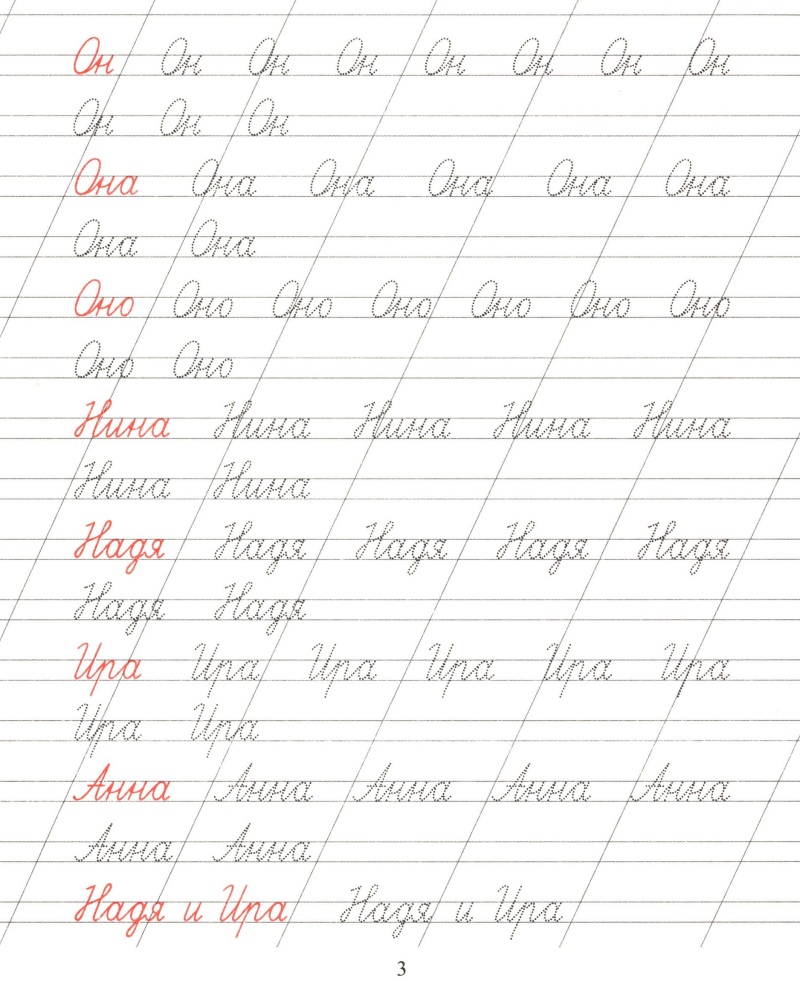 Он Он Он Он Он Он Он Он
Он Он Он
Она Она Она Она Она Она
Она Она
Оно Оно Оно Оно Оно Оно Оно
Оно Оно
Нина Нина Нина Нина Нина
Нина Нина
Надя Надя Надя Надя Надя
Надя Надя
Ира Ира Ира Ира Ира Ира
Ира Ира
Анна Анна Анна Анна Анна
Анна Анна
Надя и Ира Надя и Ира
3